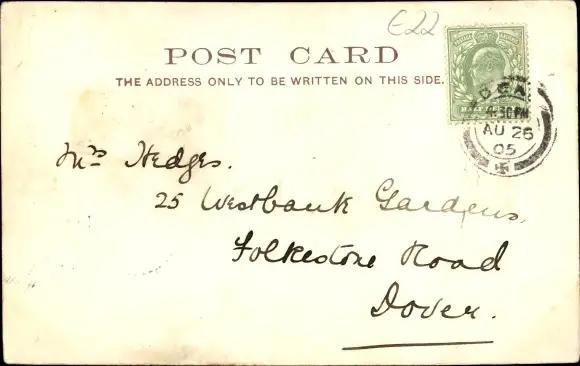 E22
POST CARD
THE ADDRESS ONLY TO BE WRITTEN ON THIS SIDE.
4.30 PM
AU 26
05
Mrs Hedges.
25 Westbank Gardens,
Folkestone Road
Dover.